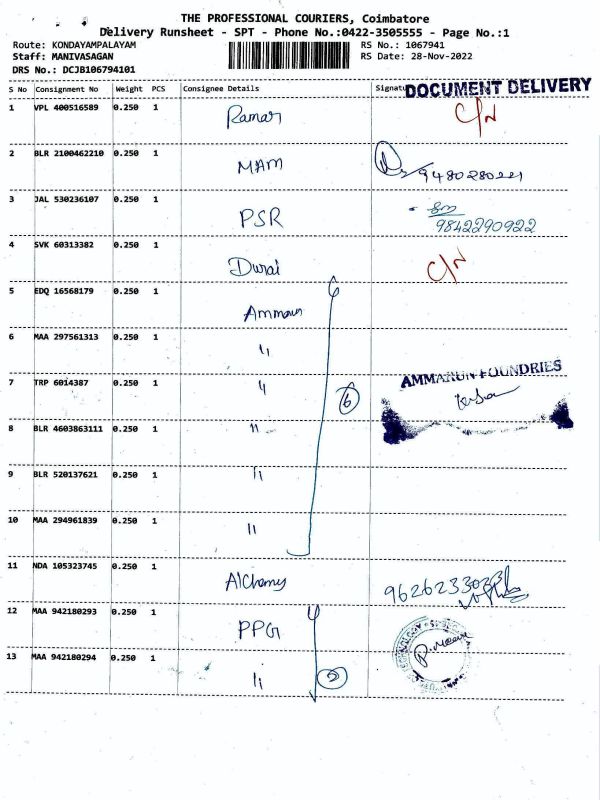 THE PROFESSIONAL COURIERS, Coimbatore
Delivery Runsheet - SPT - Phone No.:0422-3505555 - Page No.:1
Route: KONDAYAMPALAYAM RS No.: 1067941
Staff: MANIVASAGAN RS Date: 28-Nov-2022
DRS No.: DCJB106794101
S No Consignment No Weight PCS Consignee Details Signatu
DOCUMENT DELIVERY
1 VPL 400516589 0.250 1 Raman C/N
2 BLR 2100462210 0.250 1 MAM 9480280221
3 JAL 530236107 0.250 1 PSR 9842290922
4 SVK 60313382 0.250 1 Durai C/N
5 EDQ 16568179 0.250 1 Ammarun
6 MAA 297561313 0.250 1 11
7 TRP 6014387 0.250 1 11 6 AMMARUN FOUNDRIES
8 BLR 4603863111 0.250 1 11
9 BLR 520137621 0.250 1 11
10 MAA 294961839 0.250 1 11
11 NDA 105323745 0.250 1 Alchemy
12 MAA 942180293 0.250 1 PPG
13 MAA 942180294 0.250 1 11 2